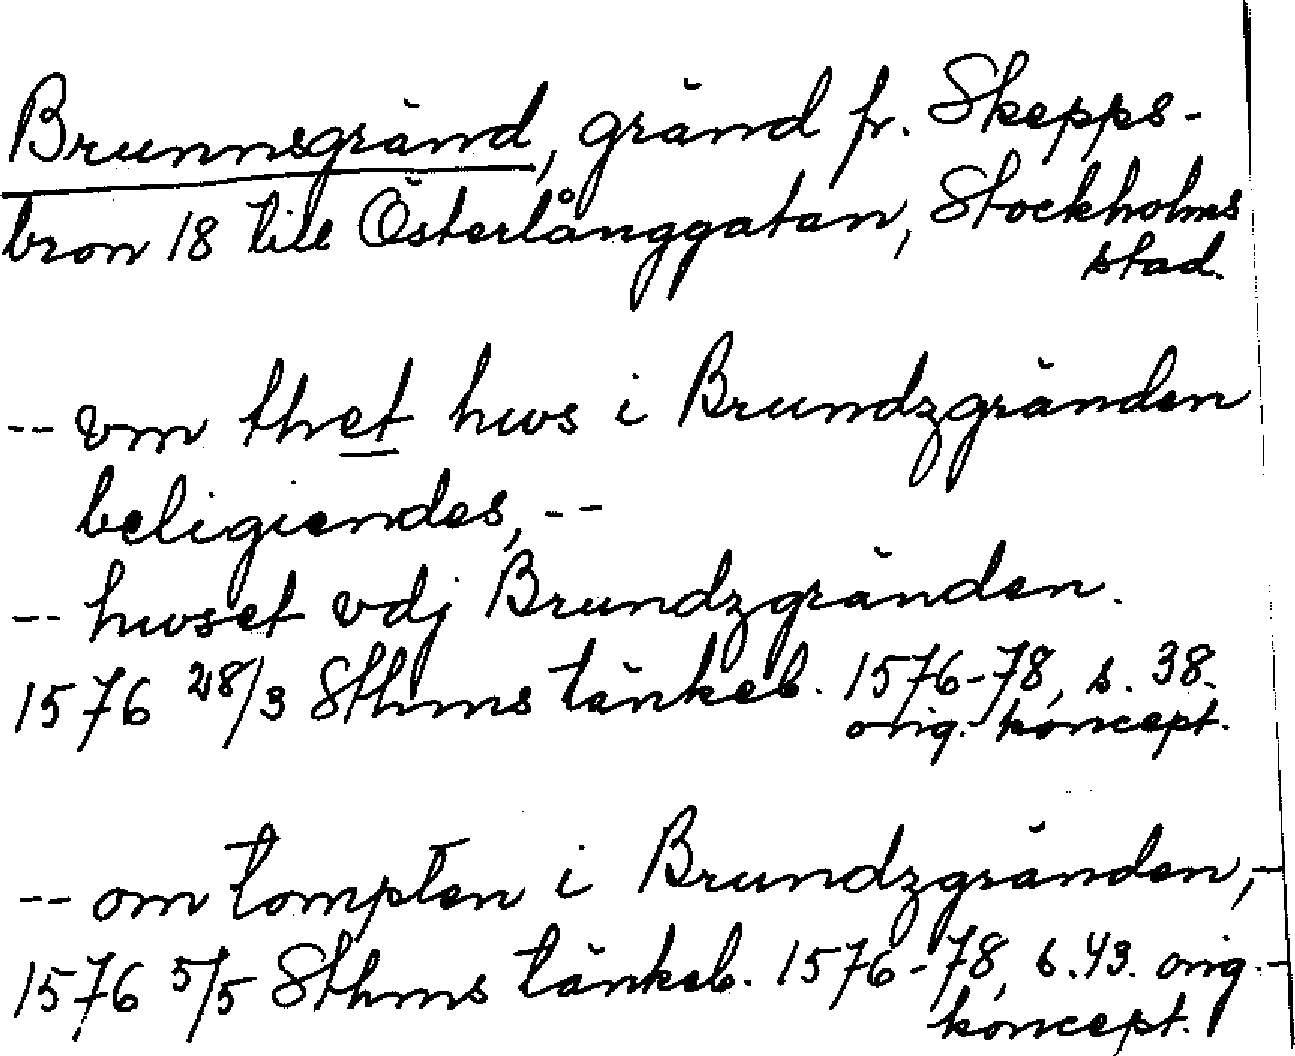 Brunnsgränd, gränd fr. Skepps-
bron 18 till Österlånggatan, Stockholms
stad.
-- vm thet hws i Brundzgränden
beligiendes, --
-- hwset vdj Brundzgränden.
1576 28/3 Sthms tänkeb. 1576-78, s. 38.
orig.-koncept.
-- om tompten i Brundzgränden,-
1576 5/5 Sthms tänkeb. 1576-78, s. 43. orig.-
koncept.